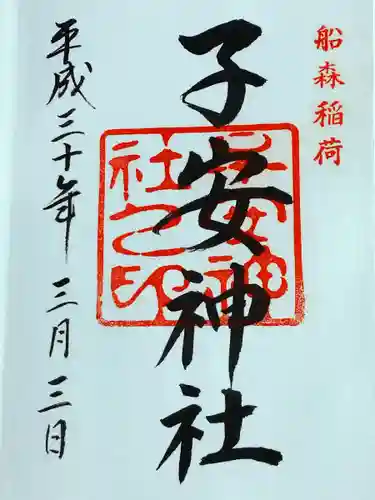 船森稲荷
子安神社
子安神社之印
平成三十年三月三日